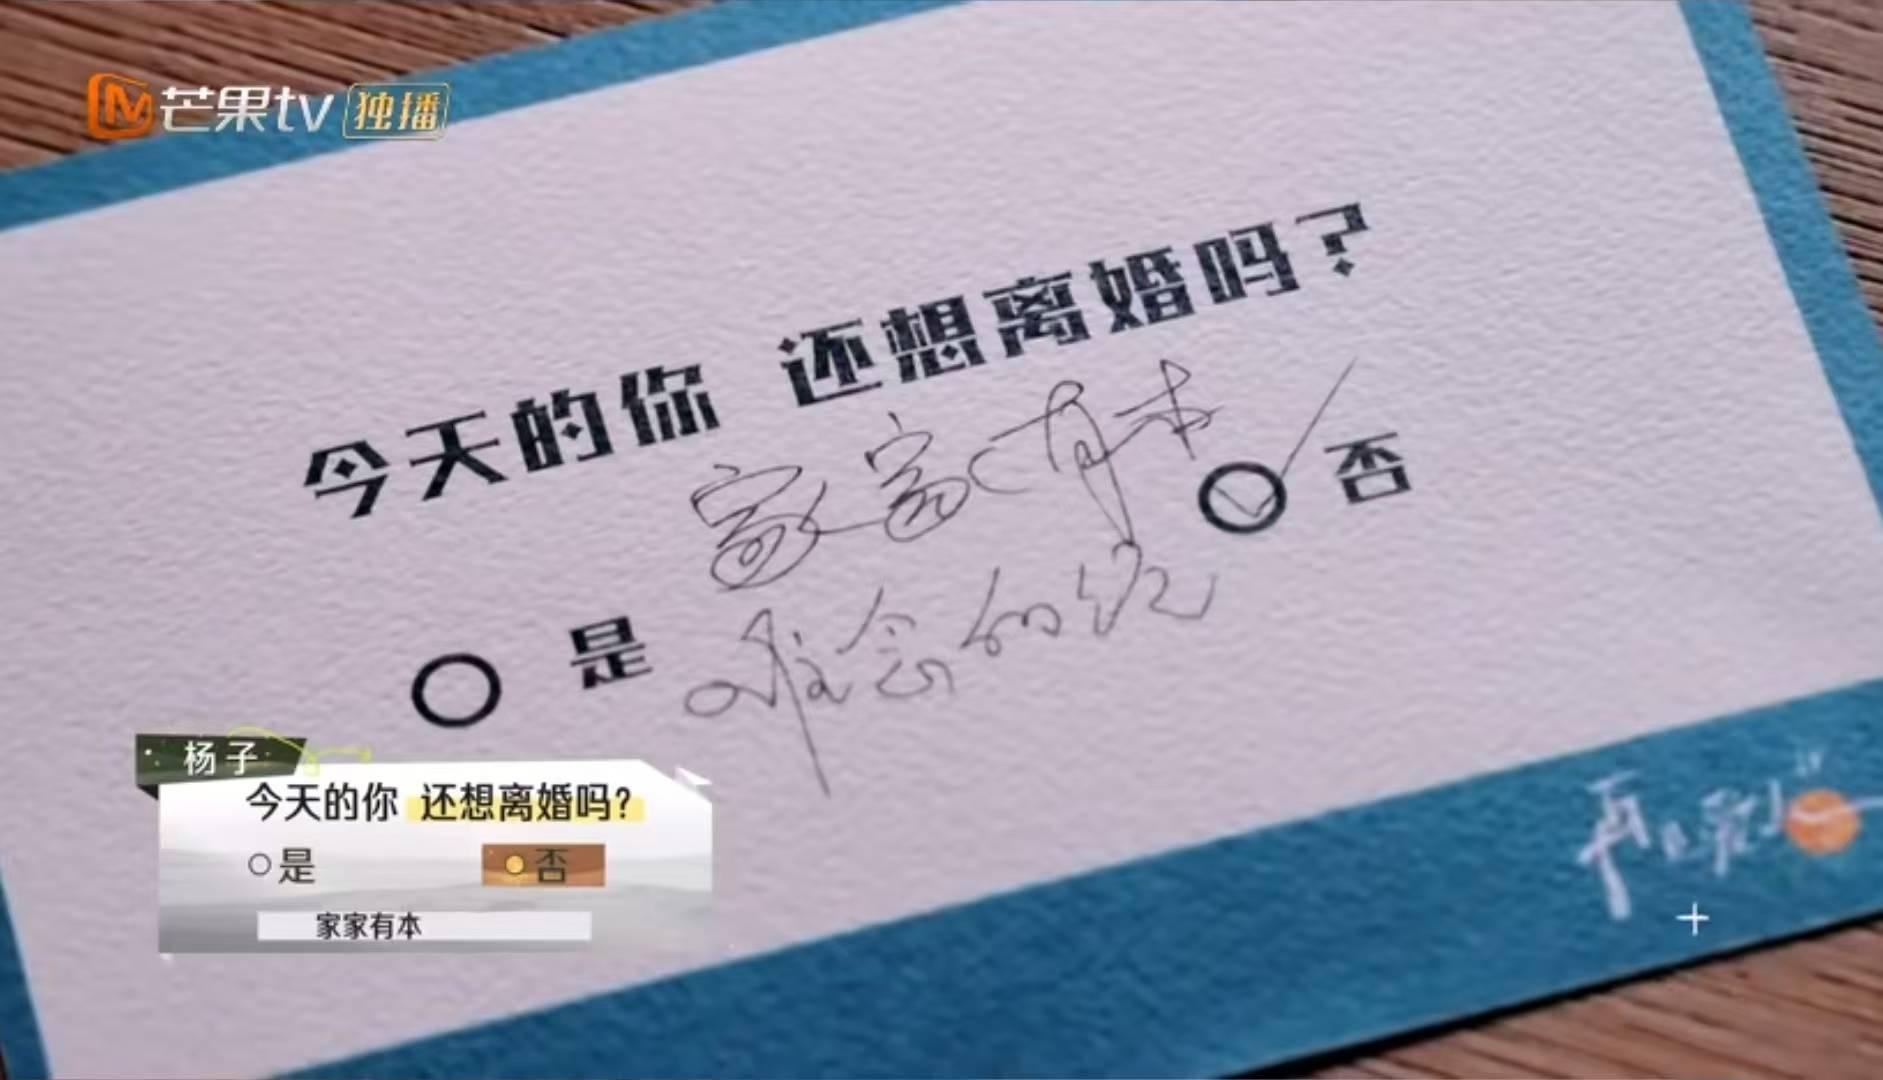 芒果tv 独播
今天的你 还想离婚吗?
家家有本
否
是
难念的经
再见爱人
杨子
今天的你 还想离婚吗?
是 否
家家有本